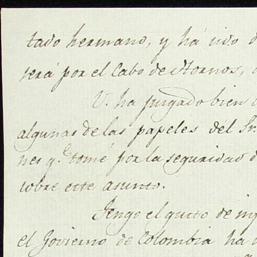 tado hermano, y há sido d
será por el Cabo de Hornos,
V. ha juzgado bien
algunas de las papeles del Sr.
nes q.e tomé por la seguridad d
sobre este asunto.
Tengo el gusto de
el Govierno de Colombia ha